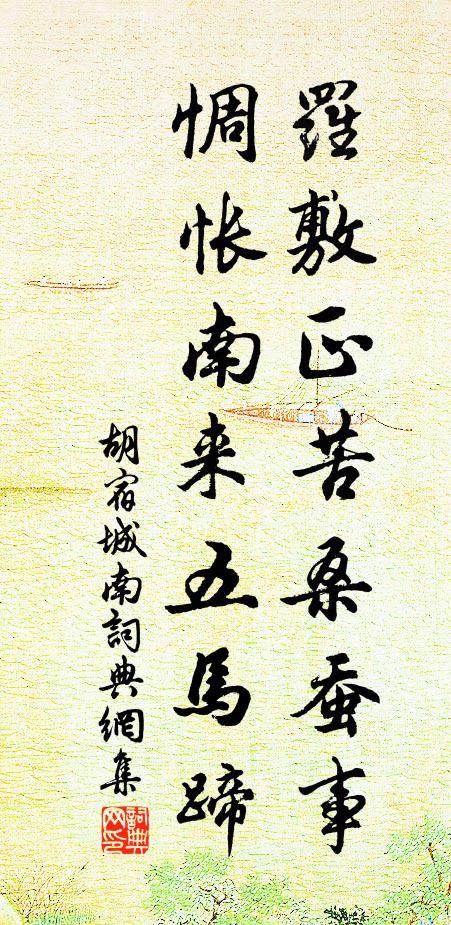 羅敷正苦桑蚕事
惆怅南来五馬蹄
胡宿城南詞典網集
詞典网印